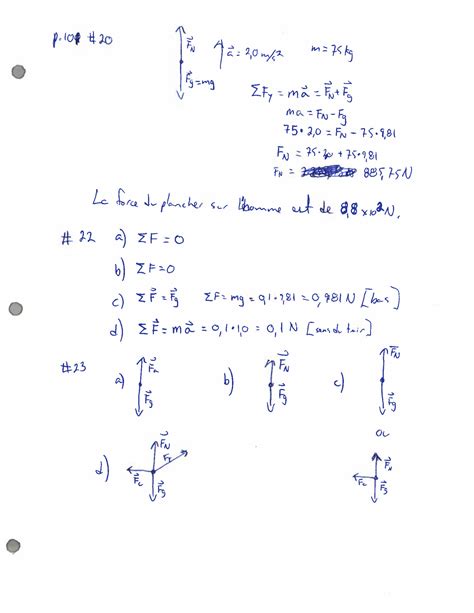 p.101 #20
F⃗N
a⃗ = 2,0 m/s² m = 75 kg
F⃗g = mg
ΣFy = ma⃗ = F⃗N + F⃗g
ma = FN - Fg
75 • 2,0 = FN - 75 • 9,81
FN = 75 • 2,0 + 75 • 9,81
FN = 885,75 N
La force du plancher sur l'homme est de 8,8 x 10² N.
#22 a) ΣF = 0
b) ΣF = 0
c) ΣF⃗ = F⃗g ΣF = mg = 0,1 • 9,81 = 0,981 N [bas]
d) ΣF⃗ = ma⃗ = 0,1 • 1,0 = 0,1 N [sens du train]
#23 a) b) F⃗N c) F⃗N
F⃗g F⃗g F⃗g
ou
d) F⃗N FT F⃗N
F⃗g F⃗g